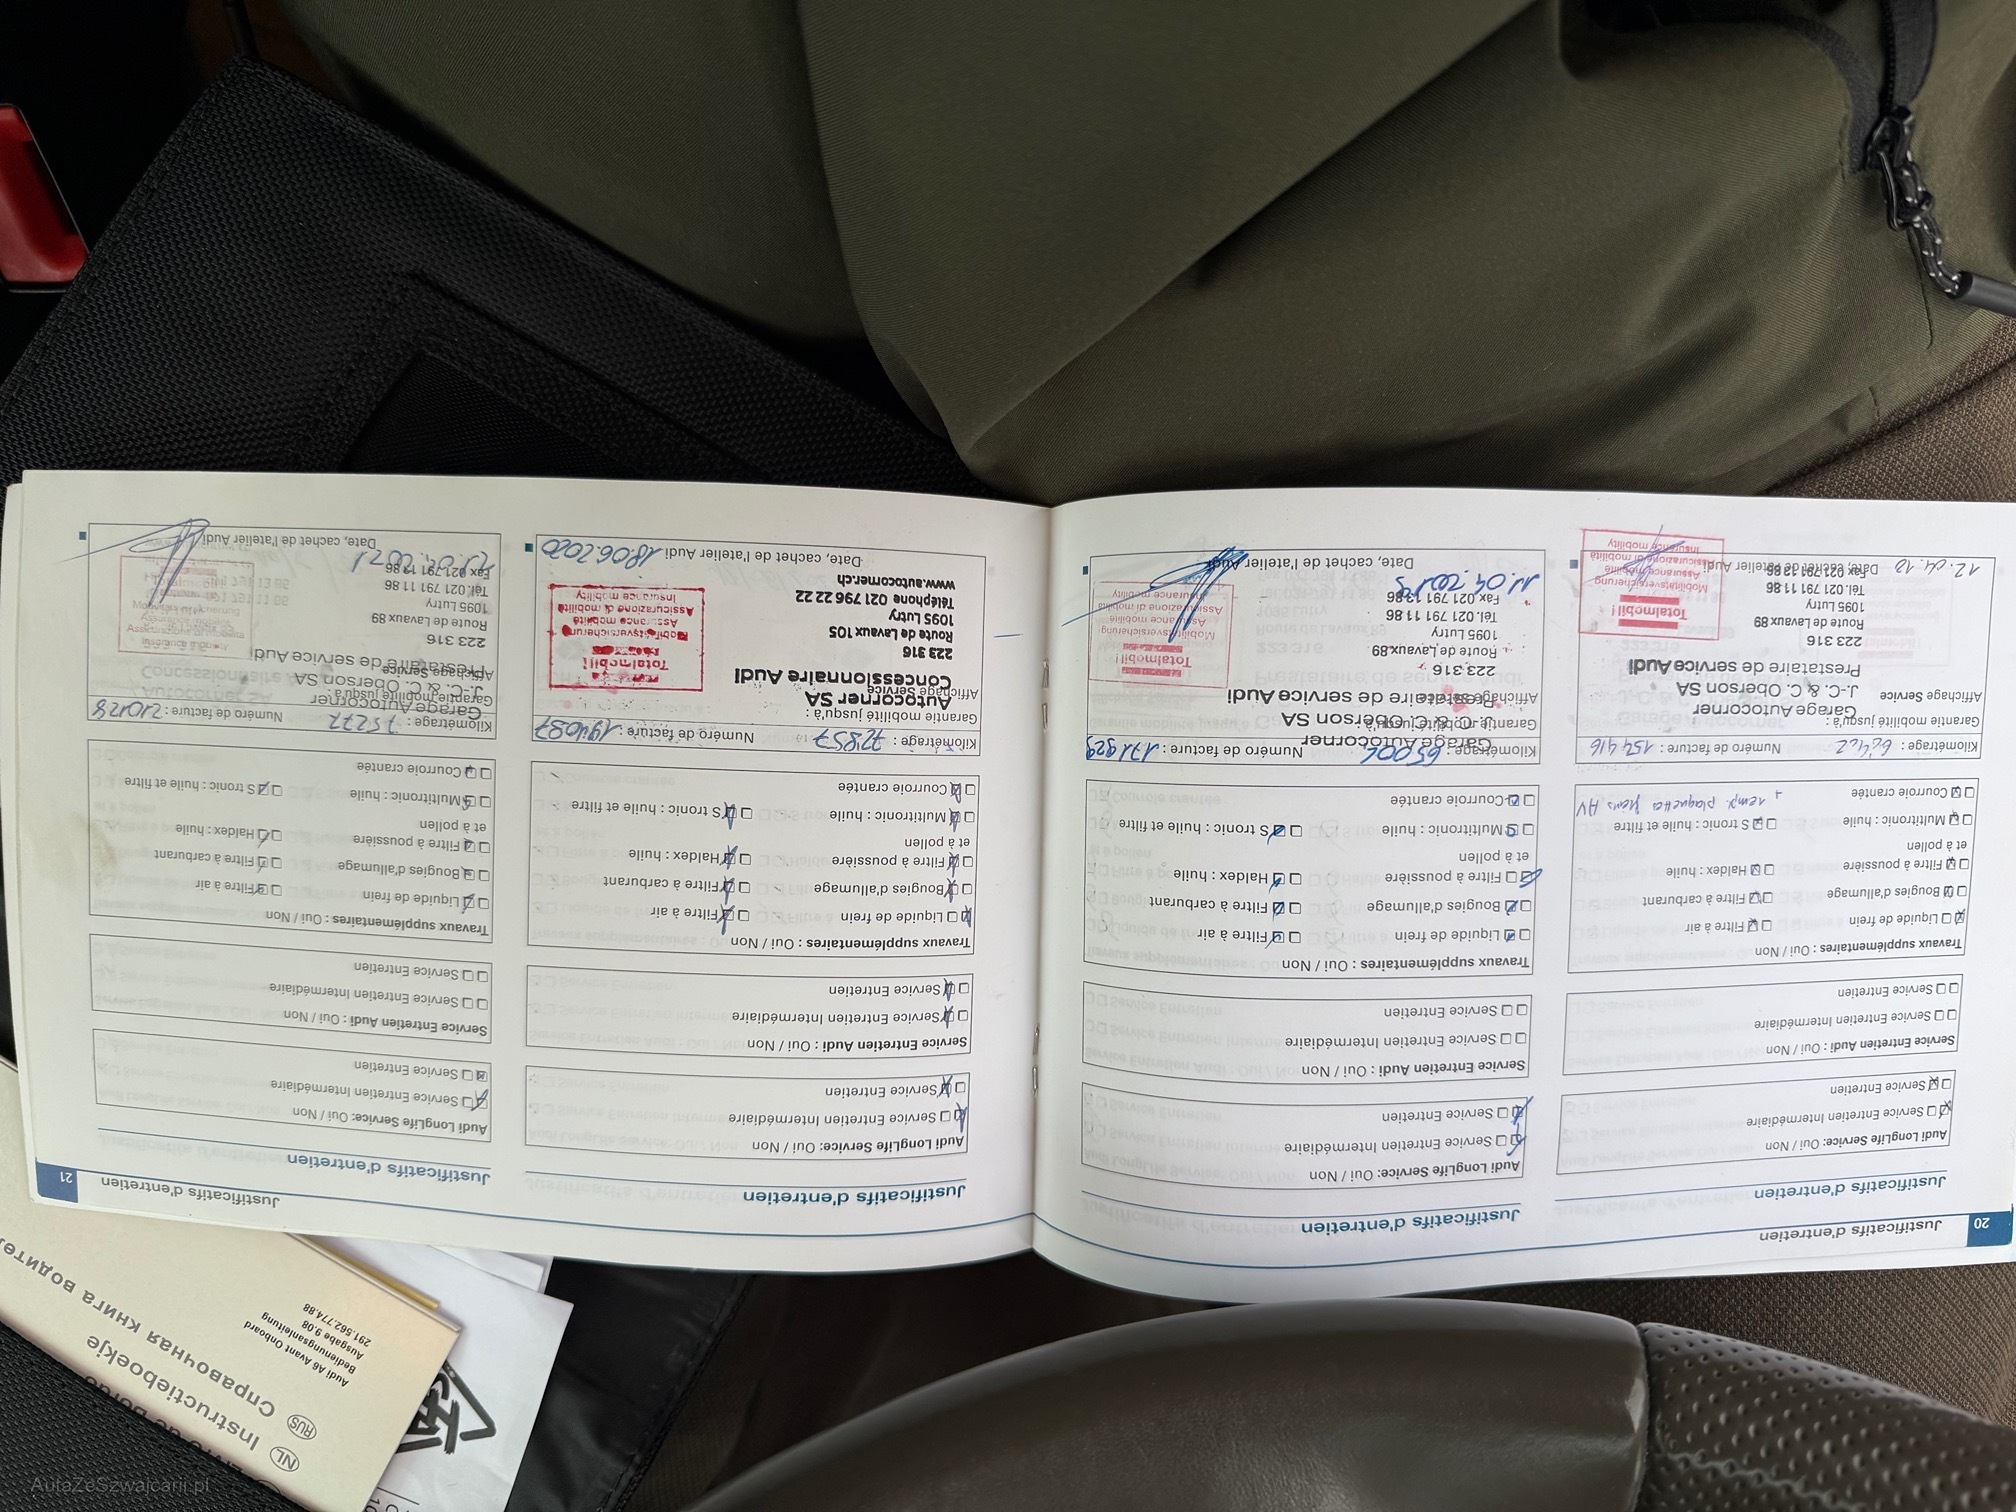 20
Justificatifs d'entretien
Justificatifs d'entretien
Audi LongLife Service: Oui / Non
Service Entretien Intermédiaire
Service Entretien
Service Entretien Audi : Oui / Non
Service Entretien Intermédiaire
Service Entretien
Travaux supplémentaires : Oui / Non
Liquide de frein
Filtre à air
Bougies d'allumage
Filtre à carburant
Filtre à poussière
et à pollen
Haldex : huile
Multitronic : huile
S tronic : huile et filtre
Courroie crantée
+ remp. plaquettes freins AV
Kilométrage :
Numéro de facture : 154416
Garantie mobilité jusqu'à :
Affichage Service
Garage Autocorner
J.-C. & C. Oberson SA
Prestataire de service Audi
223 316
Route de Lavaux 89
1095 Lutry
Tél. 021 791 11 86
Fax 021 791 13 86
Date, cachet de l'atelier Audi
12.04.18
Totalmobil!
Mobilitätsversicherung
Assurance mobilité
Assicurazione di mobilità
Insurance mobility
Justificatifs d'entretien
Audi LongLife Service: Oui / Non
Service Entretien Intermédiaire
Service Entretien
Service Entretien Audi : Oui / Non
Service Entretien Intermédiaire
Service Entretien
Travaux supplémentaires : Oui / Non
Liquide de frein
Filtre à air
Bougies d'allumage
Filtre à carburant
Filtre à poussière
et à pollen
Haldex : huile
Multitronic : huile
S tronic : huile et filtre
Courroie crantée
Kilométrage : 65006
Numéro de facture : 171929
Garantie mobilité jusqu'à :
Affichage Service
Garage Autocorner
J.-C. & C. Oberson SA
Prestataire de service Audi
223 316
Route de Lavaux 89
1095 Lutry
Tél. 021 791 11 86
Fax 021 791 13 86
11.04.2019
Date, cachet de l'atelier Audi
Totalmobil!
Mobilitätsversicherung
Assurance mobilité
Assicurazione di mobilità
Insurance mobility
Justificatifs d'entretien
21
Justificatifs d'entretien
Audi LongLife Service: Oui / Non
Service Entretien Intermédiaire
Service Entretien
Service Entretien Audi : Oui / Non
Service Entretien Intermédiaire
Service Entretien
Travaux supplémentaires : Oui / Non
Liquide de frein
Filtre à air
Bougies d'allumage
Filtre à carburant
Filtre à poussière
et à pollen
Haldex : huile
Multitronic : huile
S tronic : huile et filtre
Courroie crantée
Kilométrage : 72857
Numéro de facture : 194087
Garantie mobilité jusqu'à :
Affichage Service
Autocorner SA
Concessionnaire Audi
223 316
Route de Lavaux 105
1095 Lutry
Téléphone 021 796 22 22
www.autocorner.ch
Date, cachet de l'atelier Audi
18.06.2020
Totalmobil!
Mobilitätsversicherung
Assurance mobilité
Assicurazione di mobilità
Insurance mobility
Justificatifs d'entretien
Audi LongLife Service: Oui / Non
Service Entretien Intermédiaire
Service Entretien
Service Entretien Audi : Oui / Non
Service Entretien Intermédiaire
Service Entretien
Travaux supplémentaires : Oui / Non
Liquide de frein
Filtre à air
Bougies d'allumage
Filtre à carburant
Filtre à poussière
et à pollen
Haldex : huile
Multitronic : huile
S tronic : huile et filtre
Courroie crantée
Kilométrage : 75277
Numéro de facture : 210128
Garantie mobilité jusqu'à :
Affichage Service
Garage Autocorner
J.-C. & C. Oberson SA
Prestataire de service Audi
223 316
Route de Lavaux 89
1095 Lutry
Tél. 021 791 11 86
Fax 021 791 13 86
Date, cachet de l'atelier Audi
Assicurazione di mobilità
Insurance mobility
NL Instructieboekje
RUS Справочная книга
Audi A6 Avant Onboard
Bedienungsanleitung
Ausgabe 9.08
291.562.774.88
AutaZeSzwajcarii.pl